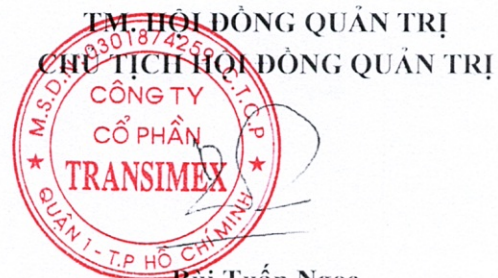 TM. HỘI ĐỒNG QUẢN TRỊ
CHỦ TỊCH HỘI ĐỒNG QUẢN TRỊ
M.S.D.N: 0301874259 - C.T.C.P
CÔNG TY
CỔ PHẦN
TRANSIMEX
QUẬN 1 - T.P HỒ CHÍ MINH
Bùi Tuấn Ngọc